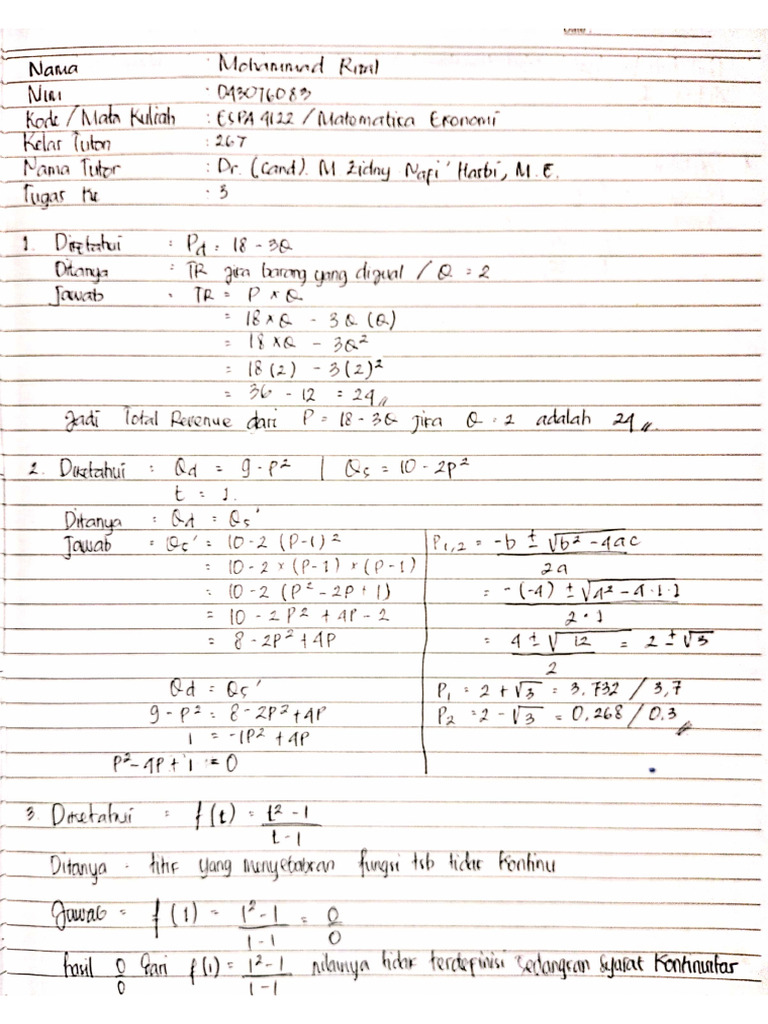 Nama : Mohammad Rizal
NIM : 043076083
Kode / Mata Kuliah : ESPA 4122 / Matematika Ekonomi
Kelas Tuton : 267
Nama Tutor : Dr. (Cand). M Zidny Nafi' Hasbi, M.E.
Tugas Ke : 3
1. Diketahui : Pd = 18 - 3Q
Ditanya : TR jika barang yang dijual / Q = 2
Jawab : TR = P × Q
= 18 × Q - 3Q (Q)
= 18 × Q - 3Q²
= 18 (2) - 3(2)²
= 36 - 12 = 24
Jadi Total Revenue dari P = 18 - 3Q jika Q = 2 adalah 24
2. Diketahui : Qd = 9 - P² | Qs = 10 - 2P²
t = 1.
Ditanya : Qd = Qs'
Jawab = Qs' = 10 - 2 (P-1)²
= 10 - 2 × (P-1) × (P-1)
= 10 - 2 (P² - 2P + 1)
= 10 - 2P² + 4P - 2
= 8 - 2P² + 4P
Qd = Qs'
9 - P² = 8 - 2P² + 4P
1 = -1P² + 4P
P² - 4P + 1 = 0
P1,2 = -b ± √b² - 4ac
2a
= -(-4) ± √4² - 4·1·1
2·1
= 4 ± √12 = 2 ± √3
2
P1 = 2 + √3 = 3.732 / 3,7
P2 = 2 - √3 = 0.268 / 0.3
3. Diketahui = f(t) = t² - 1
t - 1
Ditanya - titik yang menyebabkan fungsi tsb tidak kontinu
Jawab = f(1) = 1² - 1 = 0
1 - 1 0
hasil 0 dari f(1) = 1² - 1 nilainya tidak terdefinisi sedangkan syarat kontinuitas
0 1 - 1